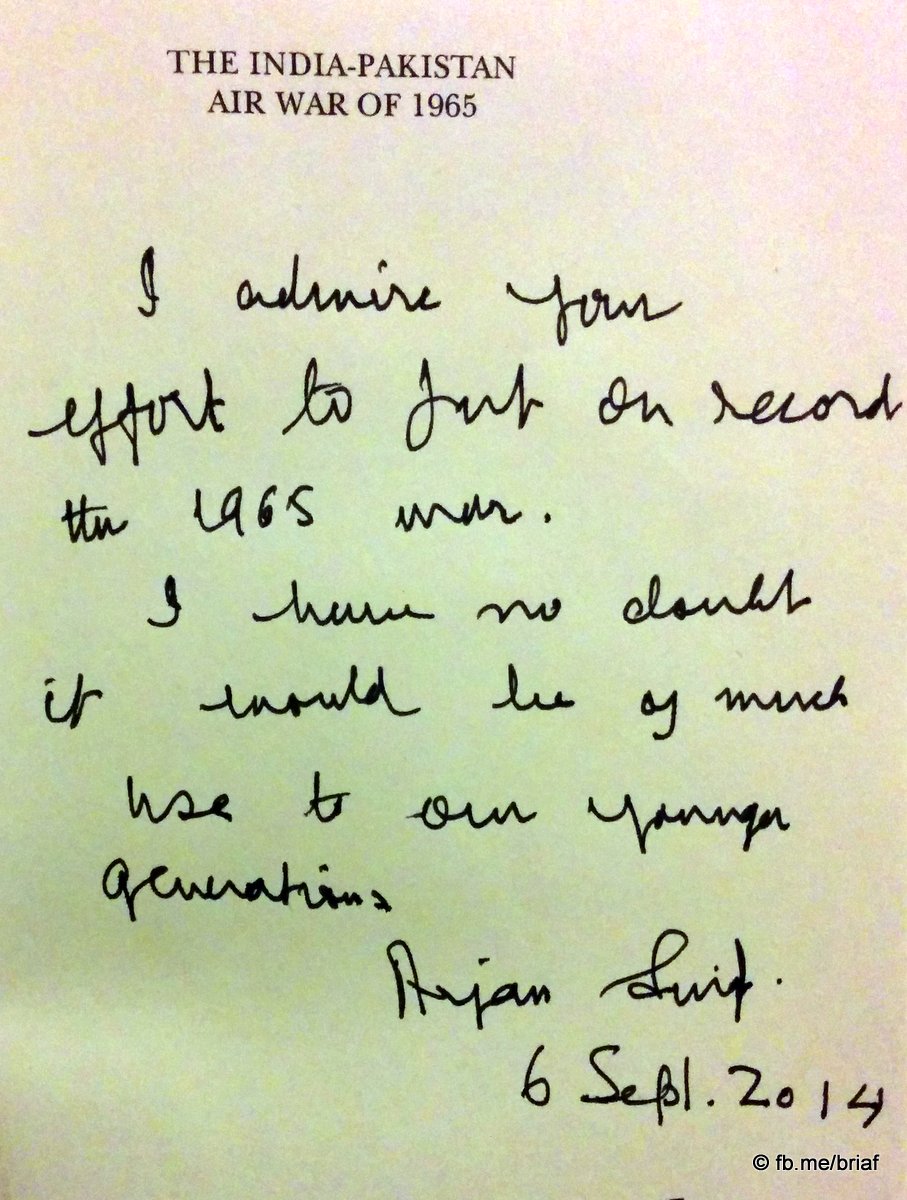 THE INDIA-PAKISTAN
AIR WAR OF 1965
I admire your
effort to put on record
the 1965 war.
I have no doubt
it would be of much
use to our younger
generations
Arjan Singh.
6 Sept. 2014
© fb.me/briaf